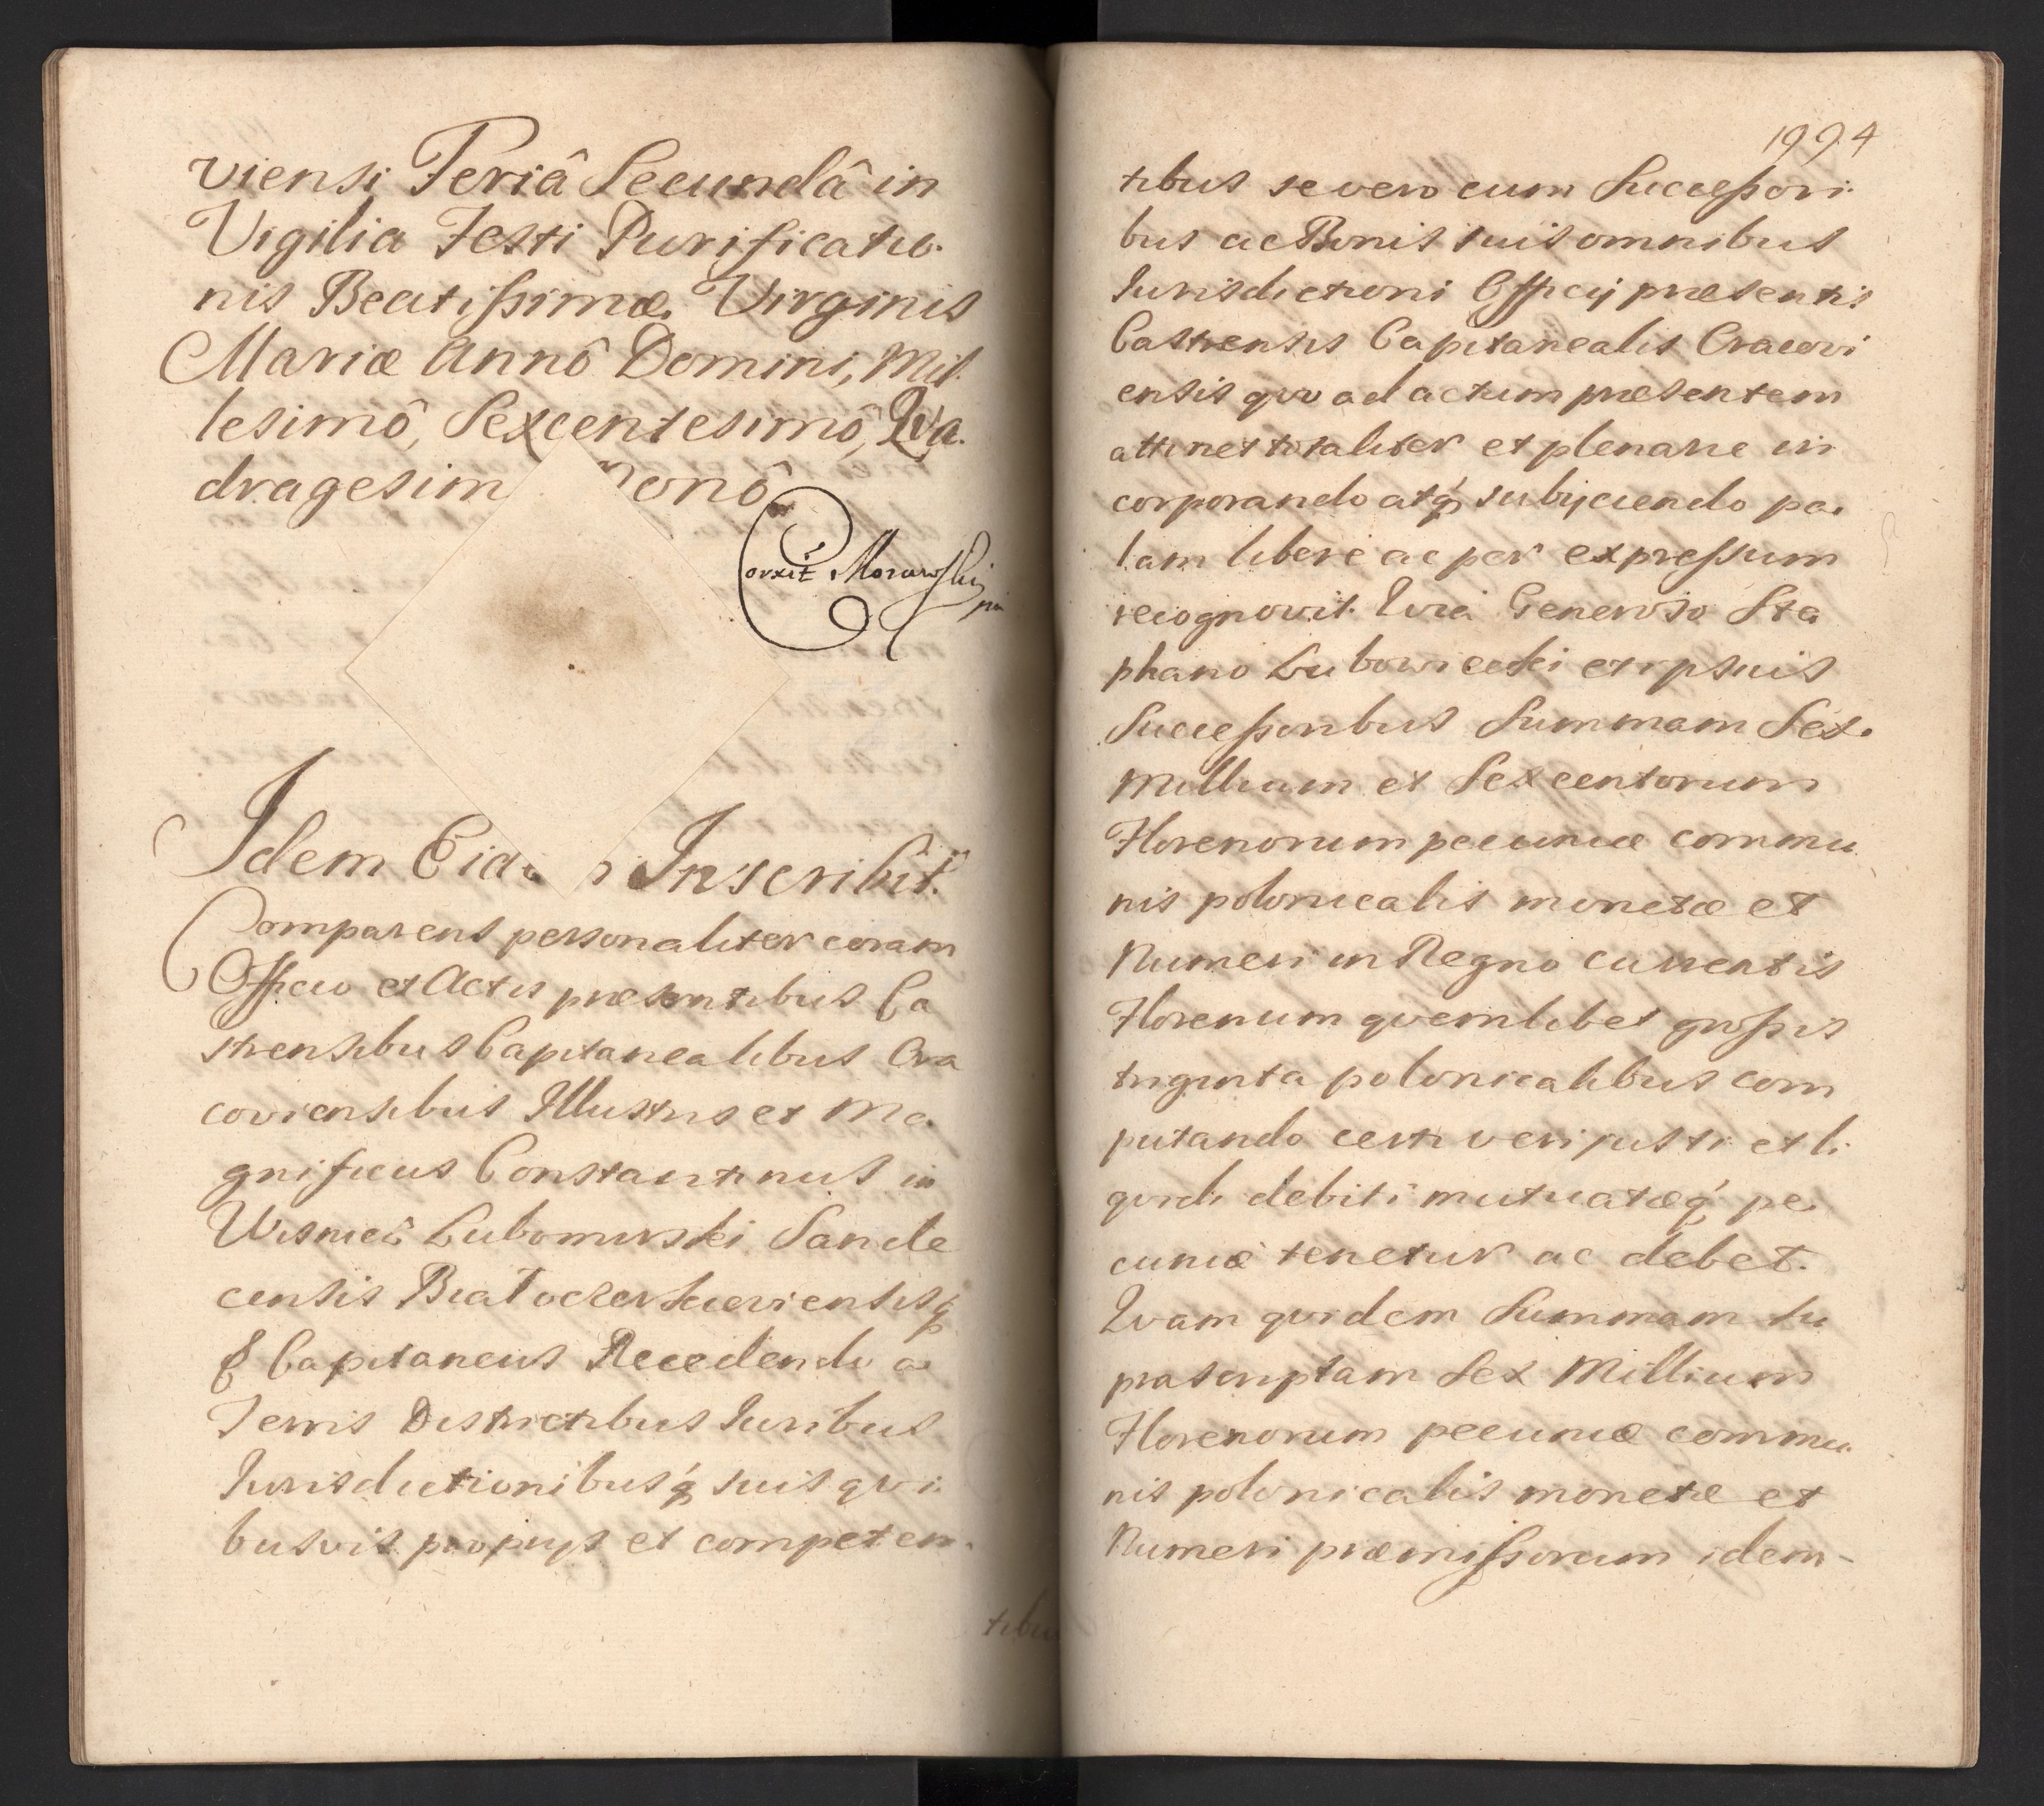 viensi Feriâ Secundâ in
Vigilia Festi Purificatio-
nis Beatissimæ Virginis
Mariæ Annô Domini, Mil-
lesimô, Sexcentesimô, Qva-
dragesim Nonô
Corxit Morawski
Idem Eid Inscribit.
Comparens personaliter coram
Officio et Actis præsentibus Ca
strensibus Capitanealibus Cra
coviensibus Illustris et Ma-
gnificus Constantinus in
Wisnicz Lubomirski Sande
censis
Capitaneus Recedendo a
Terris Districtibus Iuribus
Iurisdictionibusq suis qvi-
busvis proprijs et competen-
tibus
1994
tibus se vero cum Successori-
bus ac Bonis suis omnibus
Iurisdictioni Officij præsentis
Castrensis Capitanealis Cracovi
ensis qvo ad actum præsentem
attinet totaliter et plenarie in
corporando atq subijciendo pa-
lam libere ac per expressum
recognovit Qvia Generoso Ste
phano Lubowiecki et ipsius
Successoribus Summam Sex
Millium et Sexcentorum
Florenorum pecuniæ commu
nis polonicalis monetæ et
Numeri in Regno currentis
Florenum qvemlibet grossis
triginta polonicalibus com
putando certi veri justi et li-
qvidi debiti mutuatæq pe-
cuniæ tenetur ac debet.
Qvam qvidem Summam su
prascriptam Sex Millium
Florenorum pecuniæ commu-
nis polonicalis monetæ et
Numeri præmissorum idem-